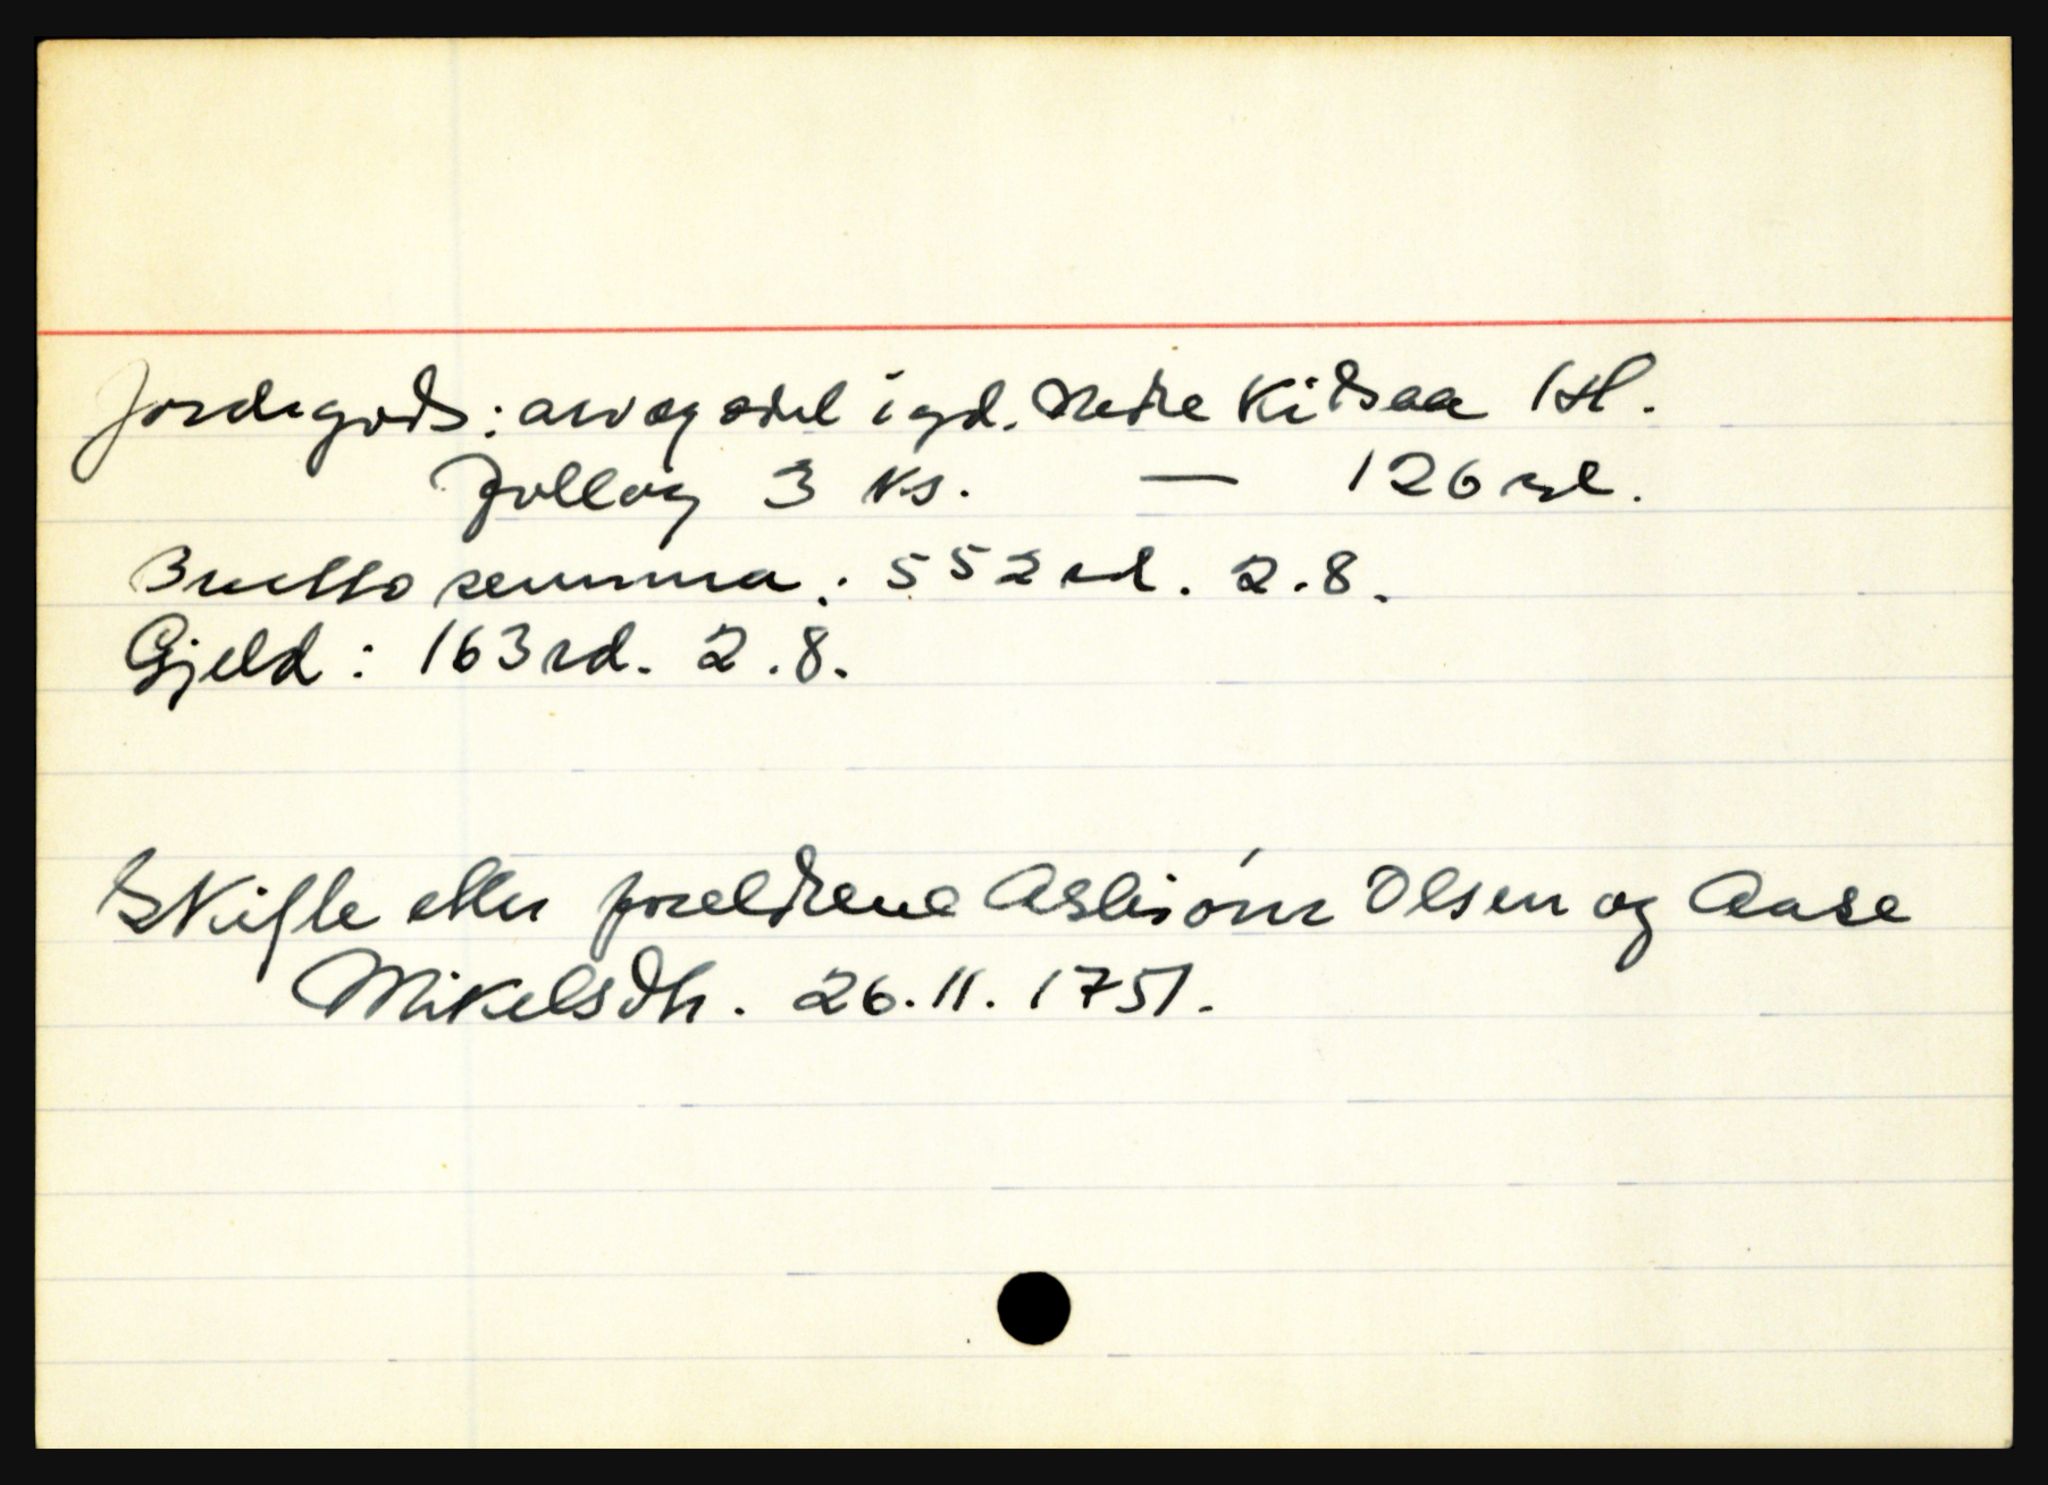 Jordegods: arv og odel i gd. Nedre Kidsaa 1 H.
Follog 3 ks. — 126 rd.
Brutto summa: 552 rd. 2.8.
Gjeld: 163 rd. 2.8.
Skifte etter foreldrene Asbiónr Olsen og Aase
Mikelsdtr. 26.11.1751.